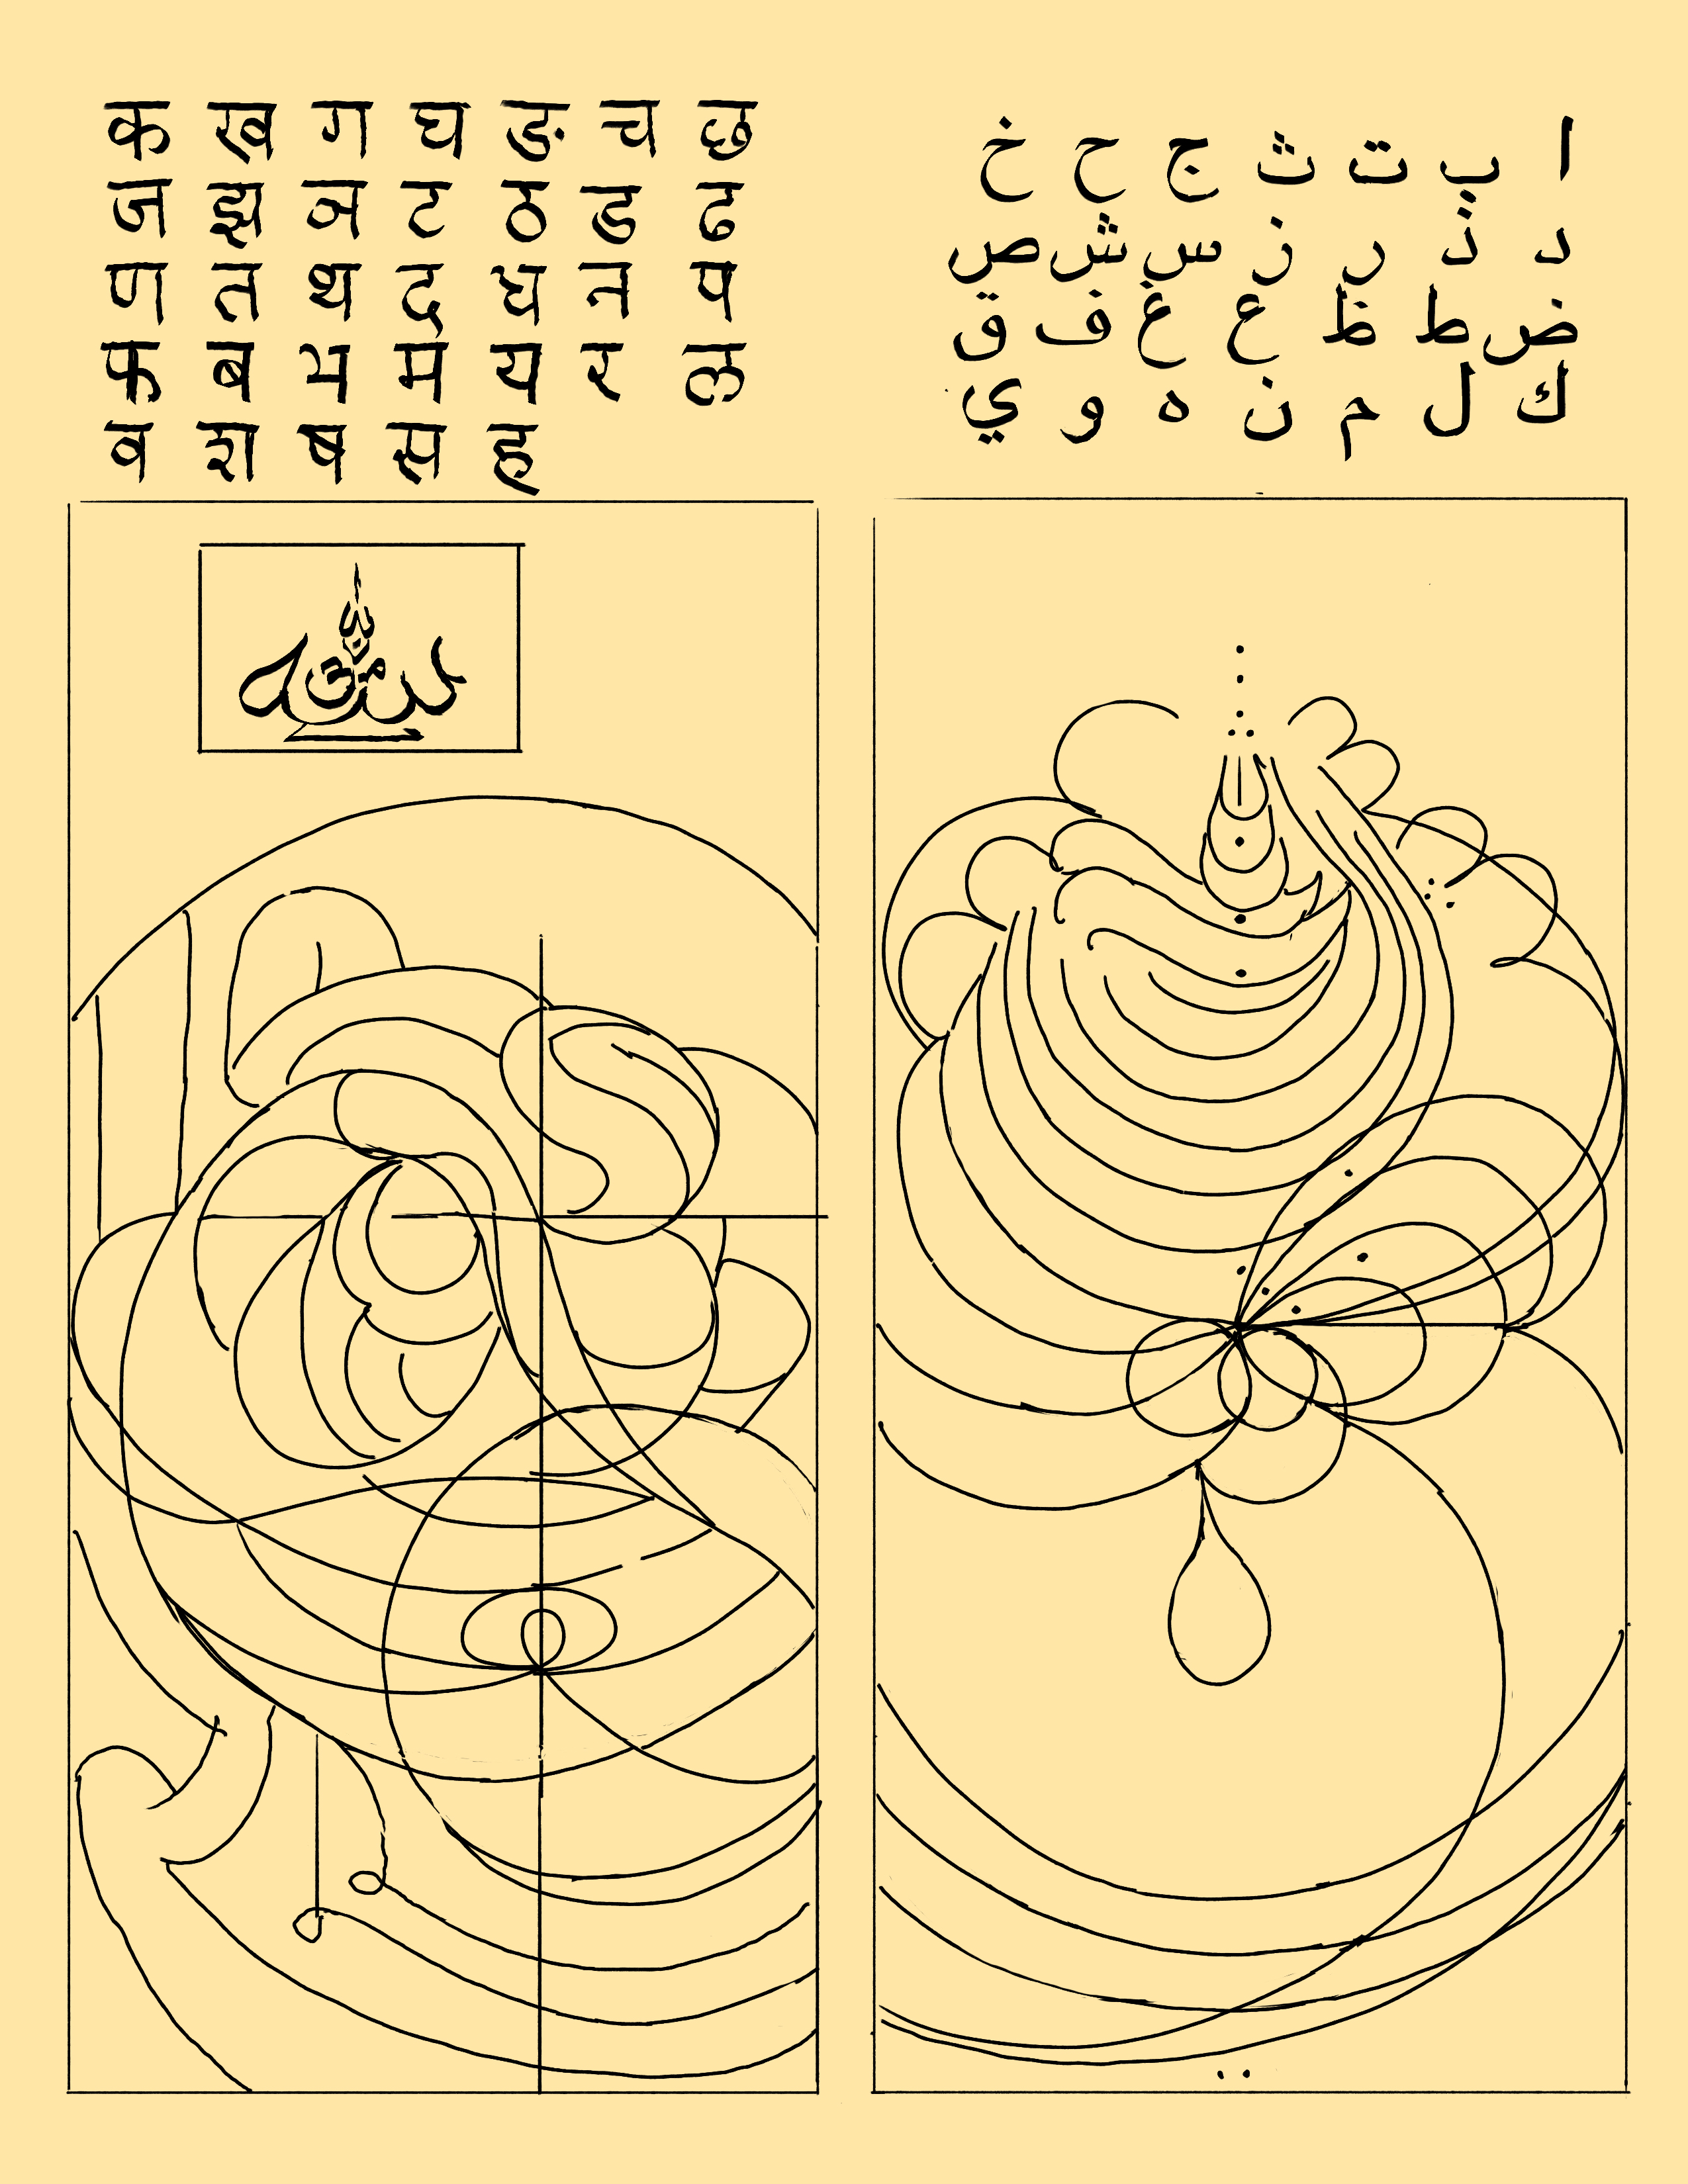 क ख ग घ ङ च छ
ज झ ञ ट ठ ड ढ
ण त थ द ध न प
फ ब भ म य र ल
व श ष स ह
ا ب ت ث ج ح خ
د ذ ر ز س ش ص
ض ط ظ ع غ ف ق
ك ل م ن ه و ي